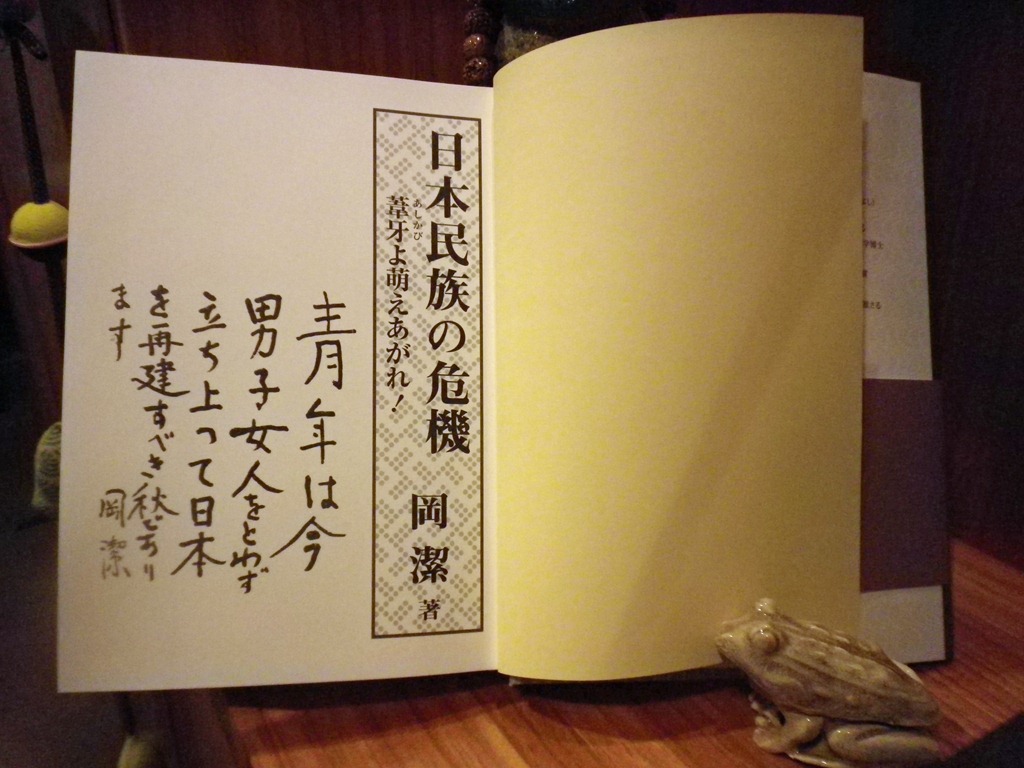 日本民族の危機
葦牙よ萌えあがれ！
あしかび
岡潔著
青年は今
男子女人をとわず
立ち上って日本
を再建すべき秋であり
ます
岡潔